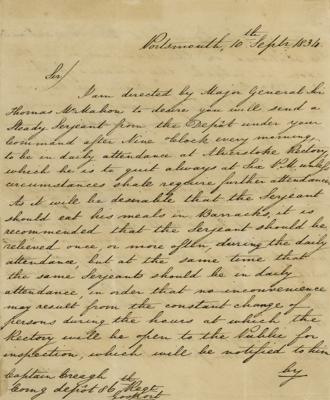 Portsmouth, 10th Septr. 1834
Sir/
I am directed by Major General Sir
Thomas McMahon to desire you will send a
Steady Serjeant from the Depôt under your
Command after Nine o'Clock every morning
to be in daily attendance at Alverstoke Rectory
which he is to quit always at Six P.M. unless
circumstances shall require further attendance,
As it will be desirable that the Serjeant
should eat his meals in Barracks, it is
recommended that the Serjeant should be
relieved once, or more often, during the daily
attendance but at the same time that
the same Serjeants should be in daily
attendance in order that no inconvenience
may result from the constant change of
persons during the hours at which the
Rectory will be open to the Public for
inspection, which will be notified to him
by
Captain Creagh
Comg depôt 86th Regt
Gosport